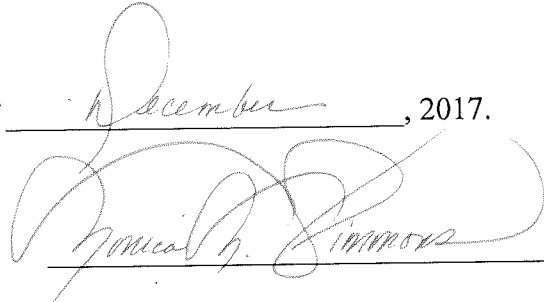 December, 2017.
Monica M. Simmons